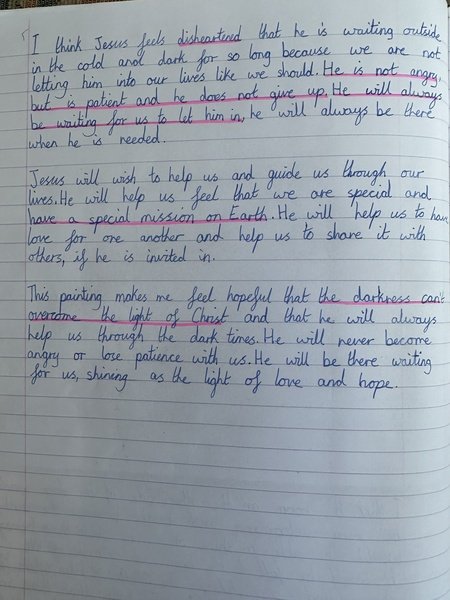 I think Jesus feels disheartened that he is waiting outside
in the cold and dark for so long because we are not
letting him into our lives like we should. He is not angry,
but is patient and he does not give up. He will always
be waiting for us to let him in, he will always be there
when he is needed.
Jesus will wish to help us and guide us through our
lives. He will help us feel that we are special and
have a special mission on Earth. He will help us to have
love for one another and help us to share it with
others, if he is invited in.
This painting makes me feel hopeful that the darkness can't
overcome the light of Christ and that he will always
help us through the dark times. He will never become
angry or lose patience with us. He will be there waiting
for us, shining as the light of love and hope.